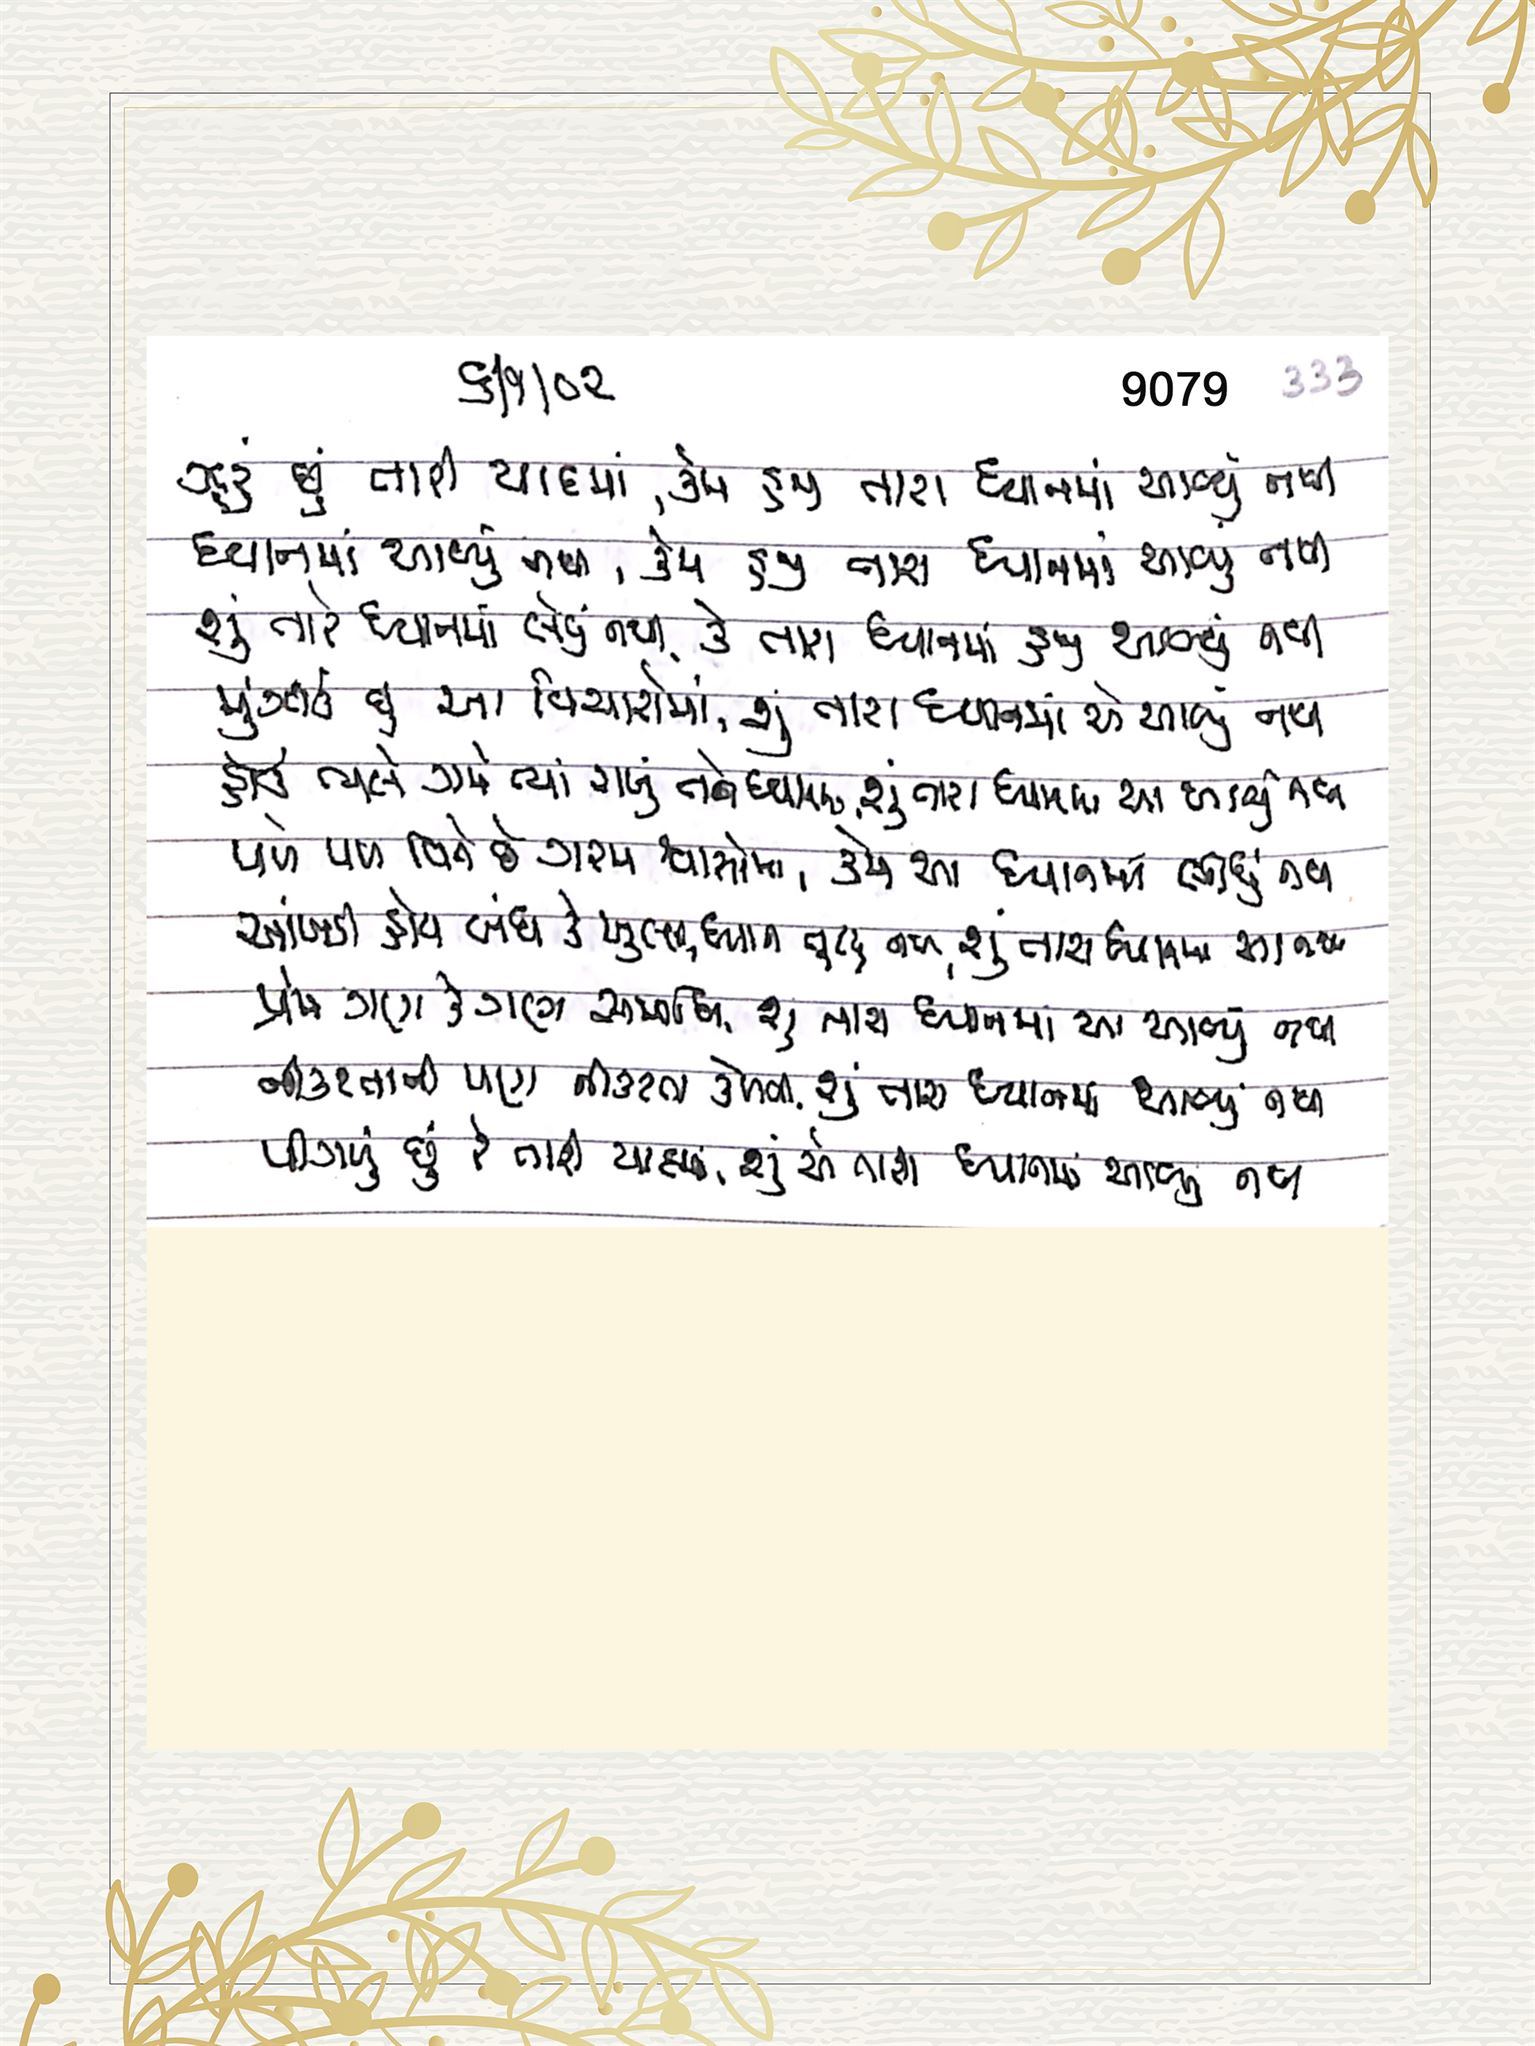 ૬/૧/૦૨ 9079 333
ઝૂરું છું તારી યાદમાં, કેમ હજી તારા ધ્યાનમાં આવ્યું નથી
ધ્યાનમાં આવ્યું નથી, કેમ હજી તારા ધ્યાનમાં આવ્યું નથી
શું તારે ધ્યાનમાં લેવું નથી, કે તારા ધ્યાનમાં હજી આવ્યું નથી
મુંઝાઉં છું આ વિચારોમાં, શું તારા ધ્યાનમાં એ આવ્યું નથી
હોઉં ભલે ગમે ત્યાં રાખું તને ધ્યાનમાં, શું તારા ધ્યાનમાં આ આવ્યું નથી
પળે પળ વિતે છે ગરમ શ્વાસોમાં, કેમ આ ધ્યાનમાં લીધું નથી
આંખડી હોય બંધ કે ખુલ્લી, ધ્યાન તૂટ્યું નથી, શું તારા ધ્યાનમાં આ નથી
પ્રેમ ગણ કે ગણ સમાધિ, શું તારા ધ્યાનમાં આ આવ્યું નથી
નીકટતાની પણ નીકટતા કેળવી, શું તારા ધ્યાનમાં આવ્યું નથી
પીગળું છું રે તારી યાદમાં, શું એ તારા ધ્યાનમાં આવ્યું નથી